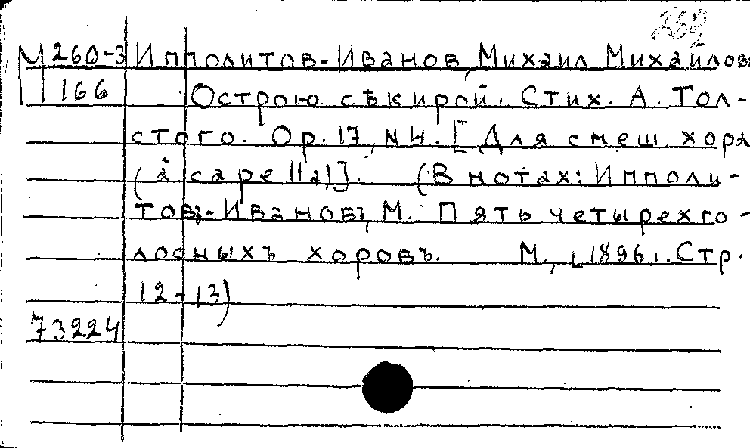 252
М 260-3 Ипполитов-Иванов, Михаил Михайлов
166 Острою сѣкирой. Стих. А. Тол-
стого. Ор. 17, N 4. [Для смеш. хора
(à capella)]. (В нотах: Ипполи-
товъ-Ивановъ, М. Пять четырехго-
лосныхъ хоровъ. М., [1896]. Стр.
12-13)
73224